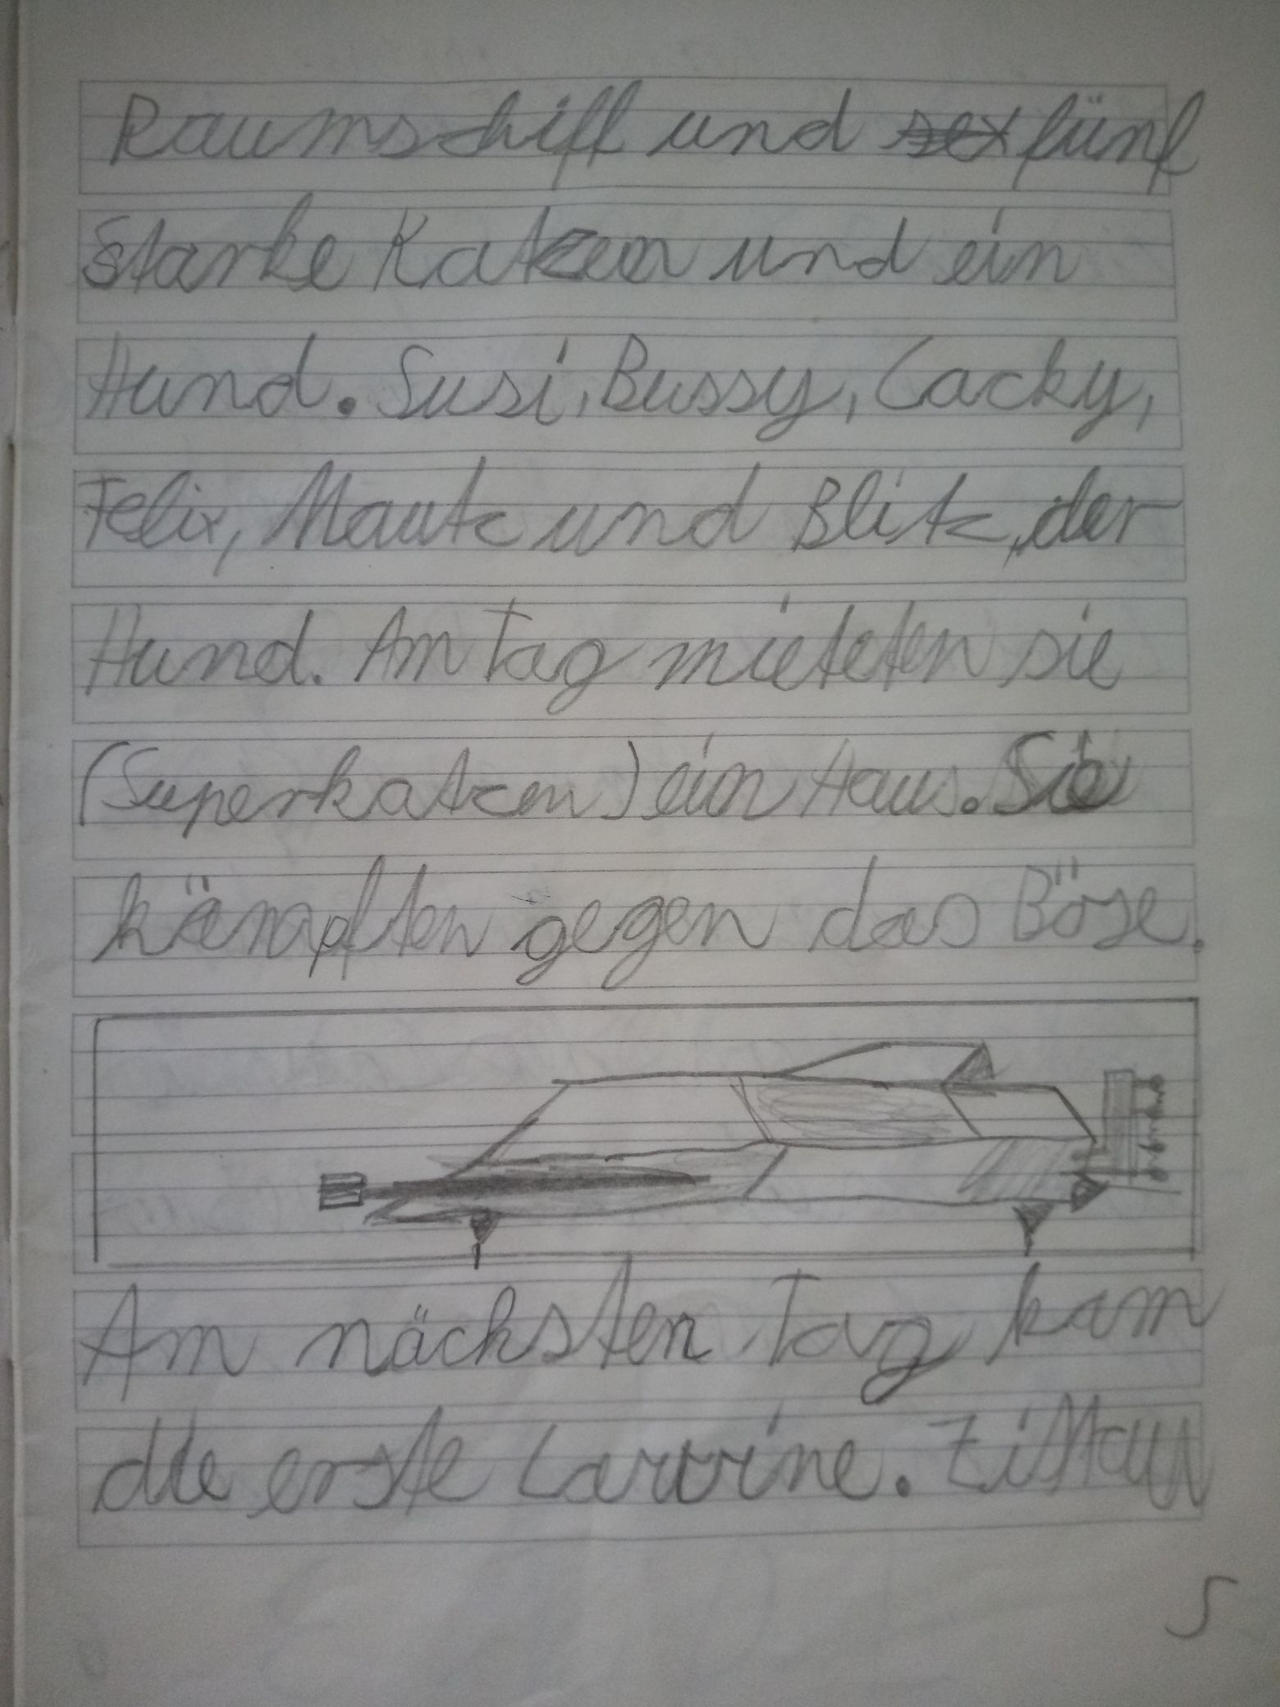 Raumschiff und sex fünf
starke Katzen und ein
Hund. Susi, Bussy, Cacky,
Felix, Mautz und Blitz, der
Hund. Am Tag mieteten sie
(Superkatzen) ein Haus. Sie
kämpften gegen das Böse.
Am nächsten Tag kam
die erste Lawine. Zittau
5